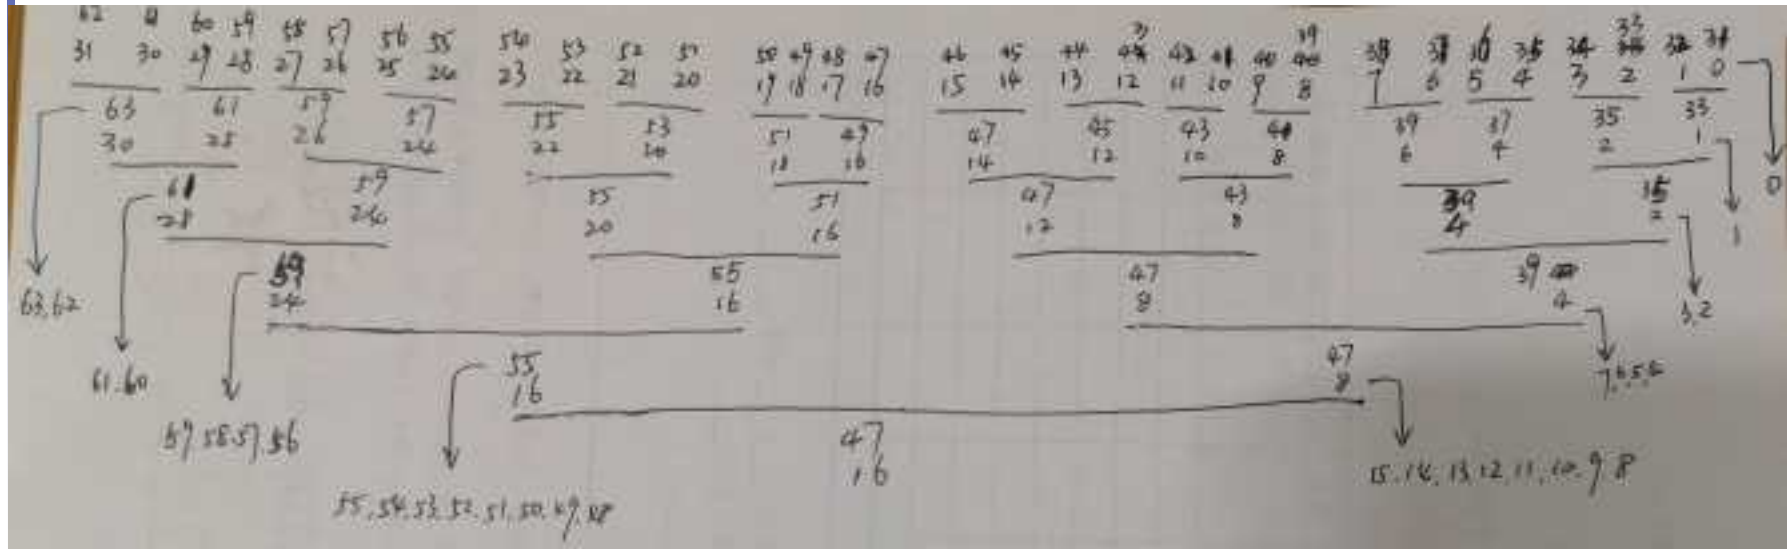 62 61 60 59 58 57 56 55 54 53 52 51 50 49 48 47 46 45 44 42 41 40 39 38 36 35 33 32 31
31 30 29 28 27 26 25 24 23 22 21 20 19 18 17 16 15 14 13 12 11 10 9 8 7 6 5 4 3 2 1 0
63 61 59 57 55 53 51 49 47 45 43 41 39 37 35 33
30 28 26 24 22 20 18 16 14 12 10 8 6 4 2 1
61 59 55 51 47 43 39 35 0
28 24 20 16 12 8 4 2 1
59 55 47 39
63,62 24 16 8 4 3,2
61.60 55 47 7,6,5,4
16 8
59.58.57.56 47
16 15.14.13.12.11.10.9.8
55.54.53.52.51.50.49.48